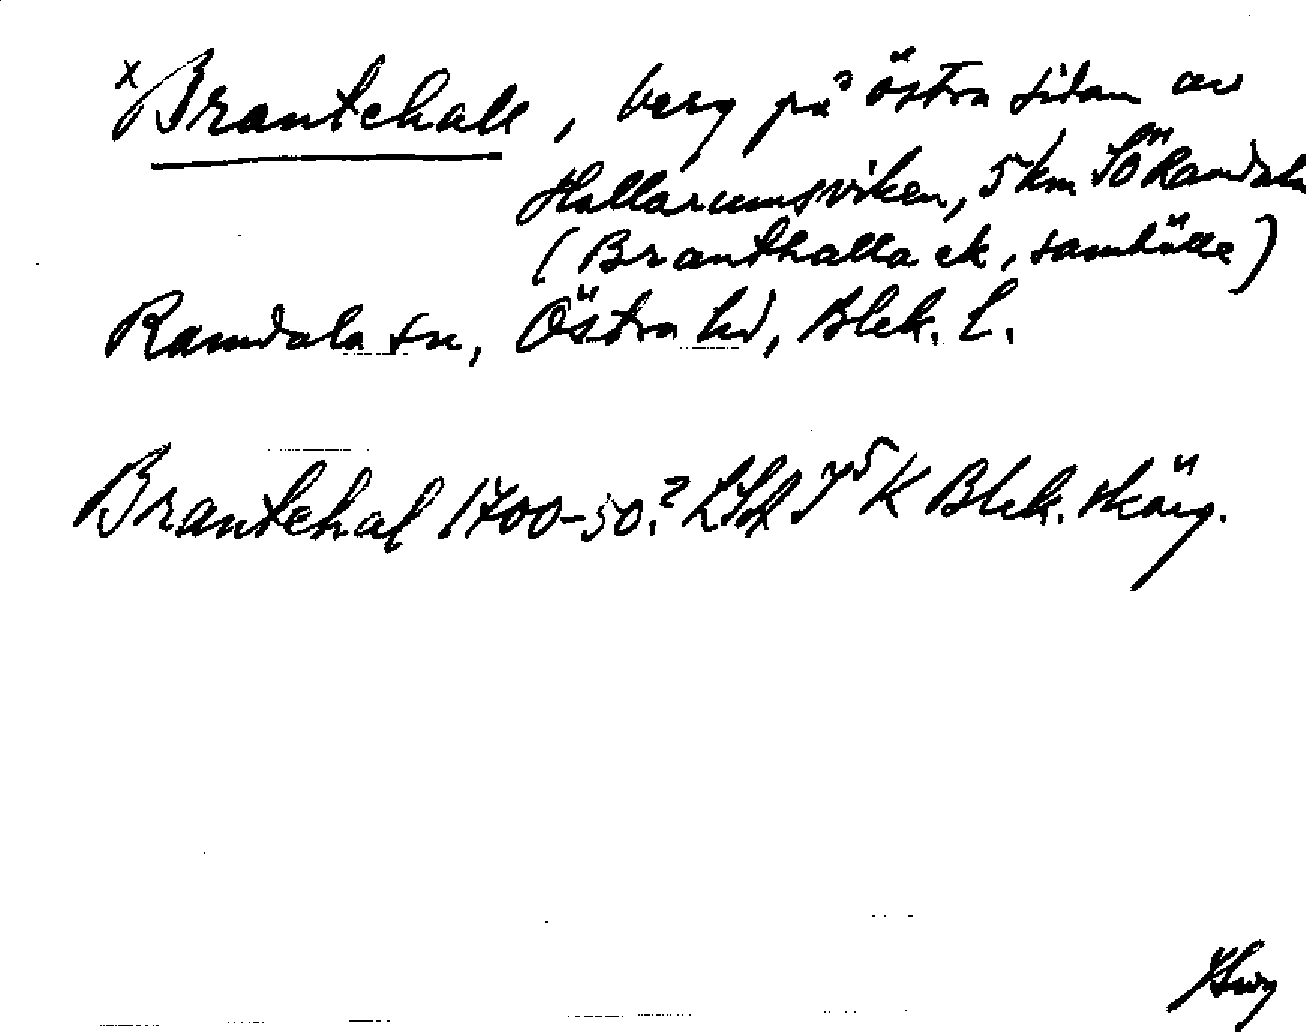 x Brantehall, berg på östra sidan av
Hallarumsviken, 5 km SÖ Ramdala
(Branthalla ek, samhälle)
Ramdala sn, Östra hd, Blek. L.
Brantehal 1700-50? K Blek. skärg.